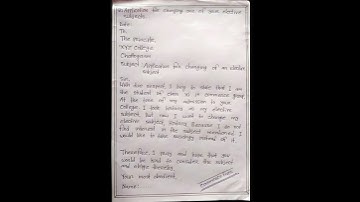 Application for changing one of your elective
subjects.
Date:
To,
The principle,
XYZ College
Chattogram
Subject: Application for changing of an elective
subject.
Sir,
With due respect, I beg to state that I am
the student of class xi in commerce group.
At the time of my admission in your
College, I took as my elective
subject. But now I want to change my
elective subject, Because I do not
find interest in the subject mentioned. I
would like to take sociology instead of it.
Therefore, I pray and hope that you
would be kind to consider the subject
and oblige thereby.
Your most obedient,
Name: